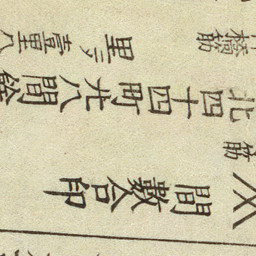 橋筋
里ヨリ壹里八
北四十四町廿八間餘
筋
間數合印